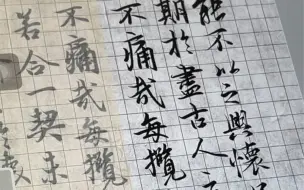 能不以之興懷
期於盡古人
不痛哉每攬
不痛哉每攬
若合一契未